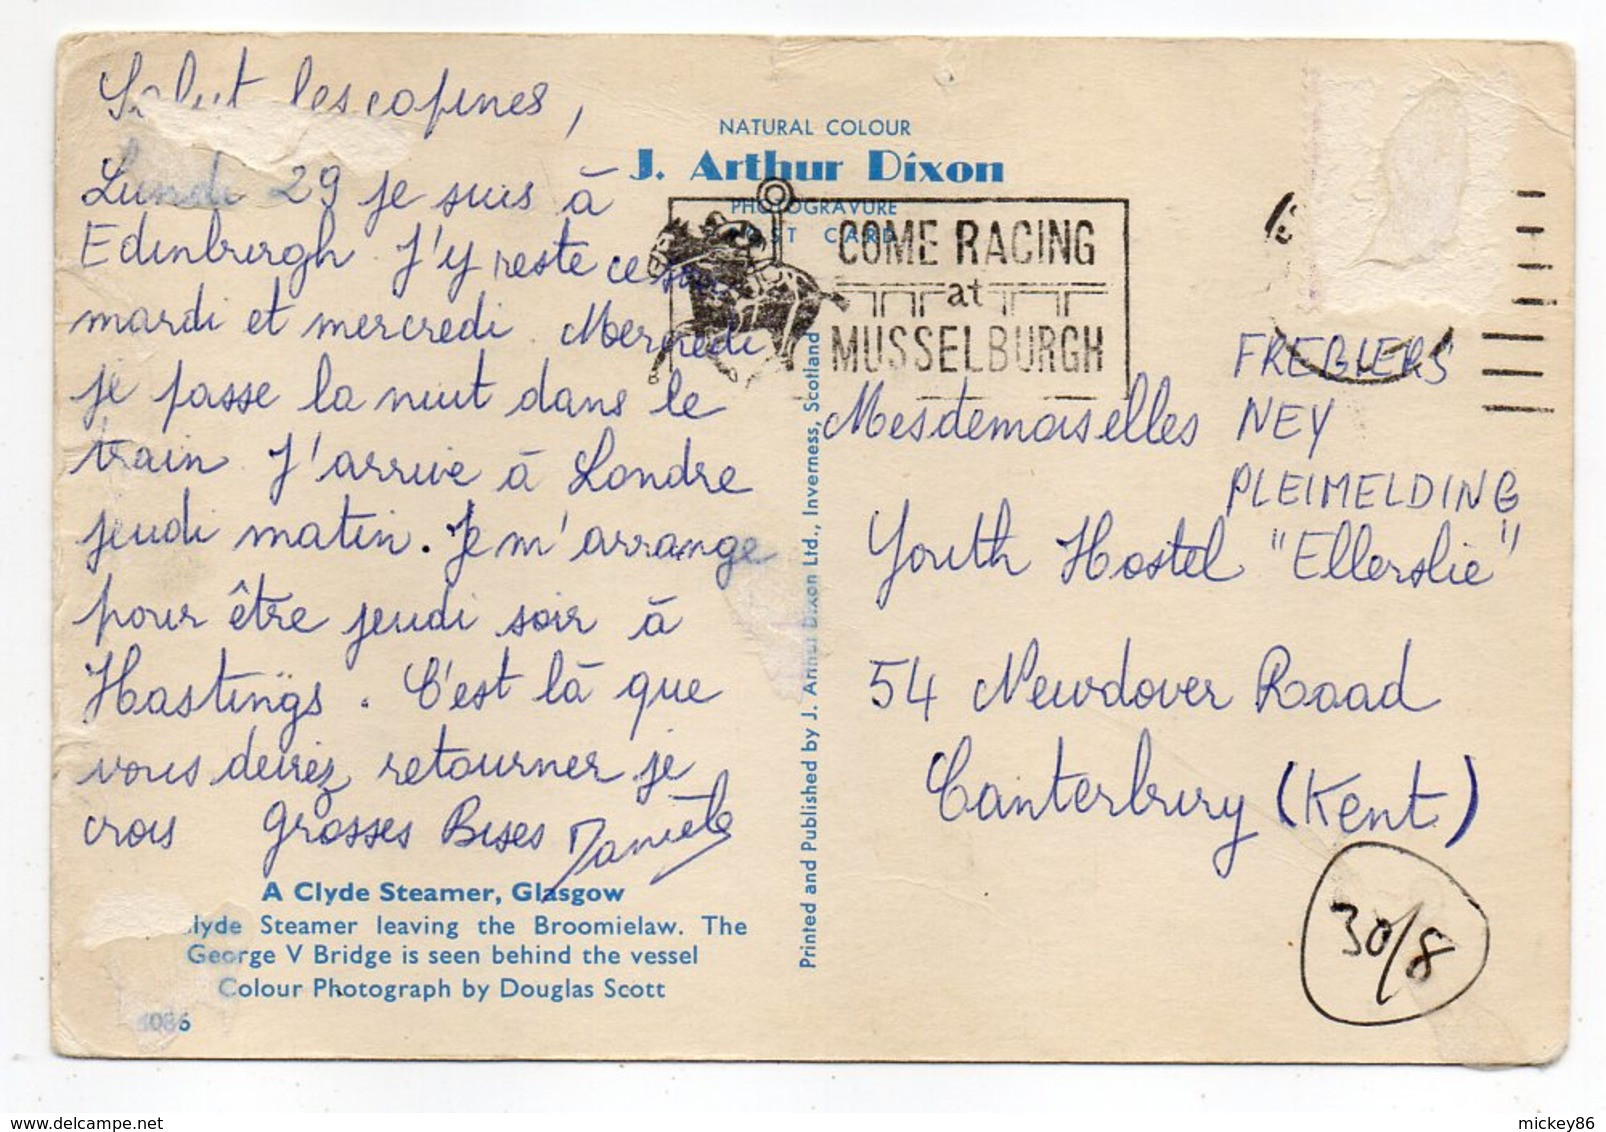 Salut les copines,
Lundi 29 je suis à
Edinburgh. J'y reste ce soir
mardi et mercredi. Mercredi
je passe la nuit dans le
train. J'arrive à Londre
jeudi matin. Je m'arrange
pour être jeudi soir à
Hastings. C'est là que
vous devez retourner je
crois grosses Bises Danièle
A Clyde Steamer, Glasgow
lyde Steamer leaving the Broomielaw. The
George V Bridge is seen behind the vessel
Colour Photograph by Douglas Scott
4086
NATURAL COLOUR
J. Arthur Dixon
PHOTOGRAVURE
POST CARD
COME RACING
at
MUSSELBURGH
Printed and Published by J. Arthur Dixon Ltd., Inverness, Scotland
FREBIERS
Mesdemoiselles NEY
PLEIMELDING
Youth Hostel "Ellerslie"
54 Newdover Road
Canterbury (Kent)
30/8
mickey86